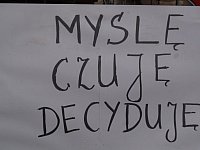 MYSLĘ
CZUJĘ
DECYDUJĘ